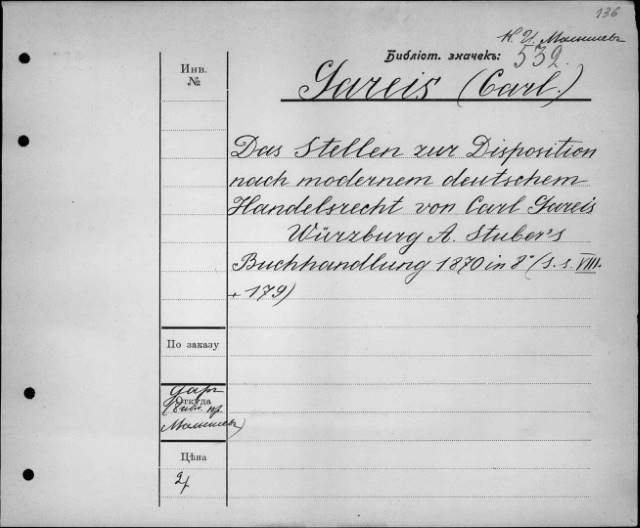 136
К. И. Малышев
Библіот. значекъ: 532.
Инв.
№
Gareis (Carl.)
Das Stellen zur Disposition
nach modernem deutschem
Handelsrecht von Carl Gareis
Würzburg A. Stuber's
Buchhandlung 1870 in 8° (S. s. VIII.
+ 179)
По заказу
Откуда
Дар
Малышев)
Цѣна